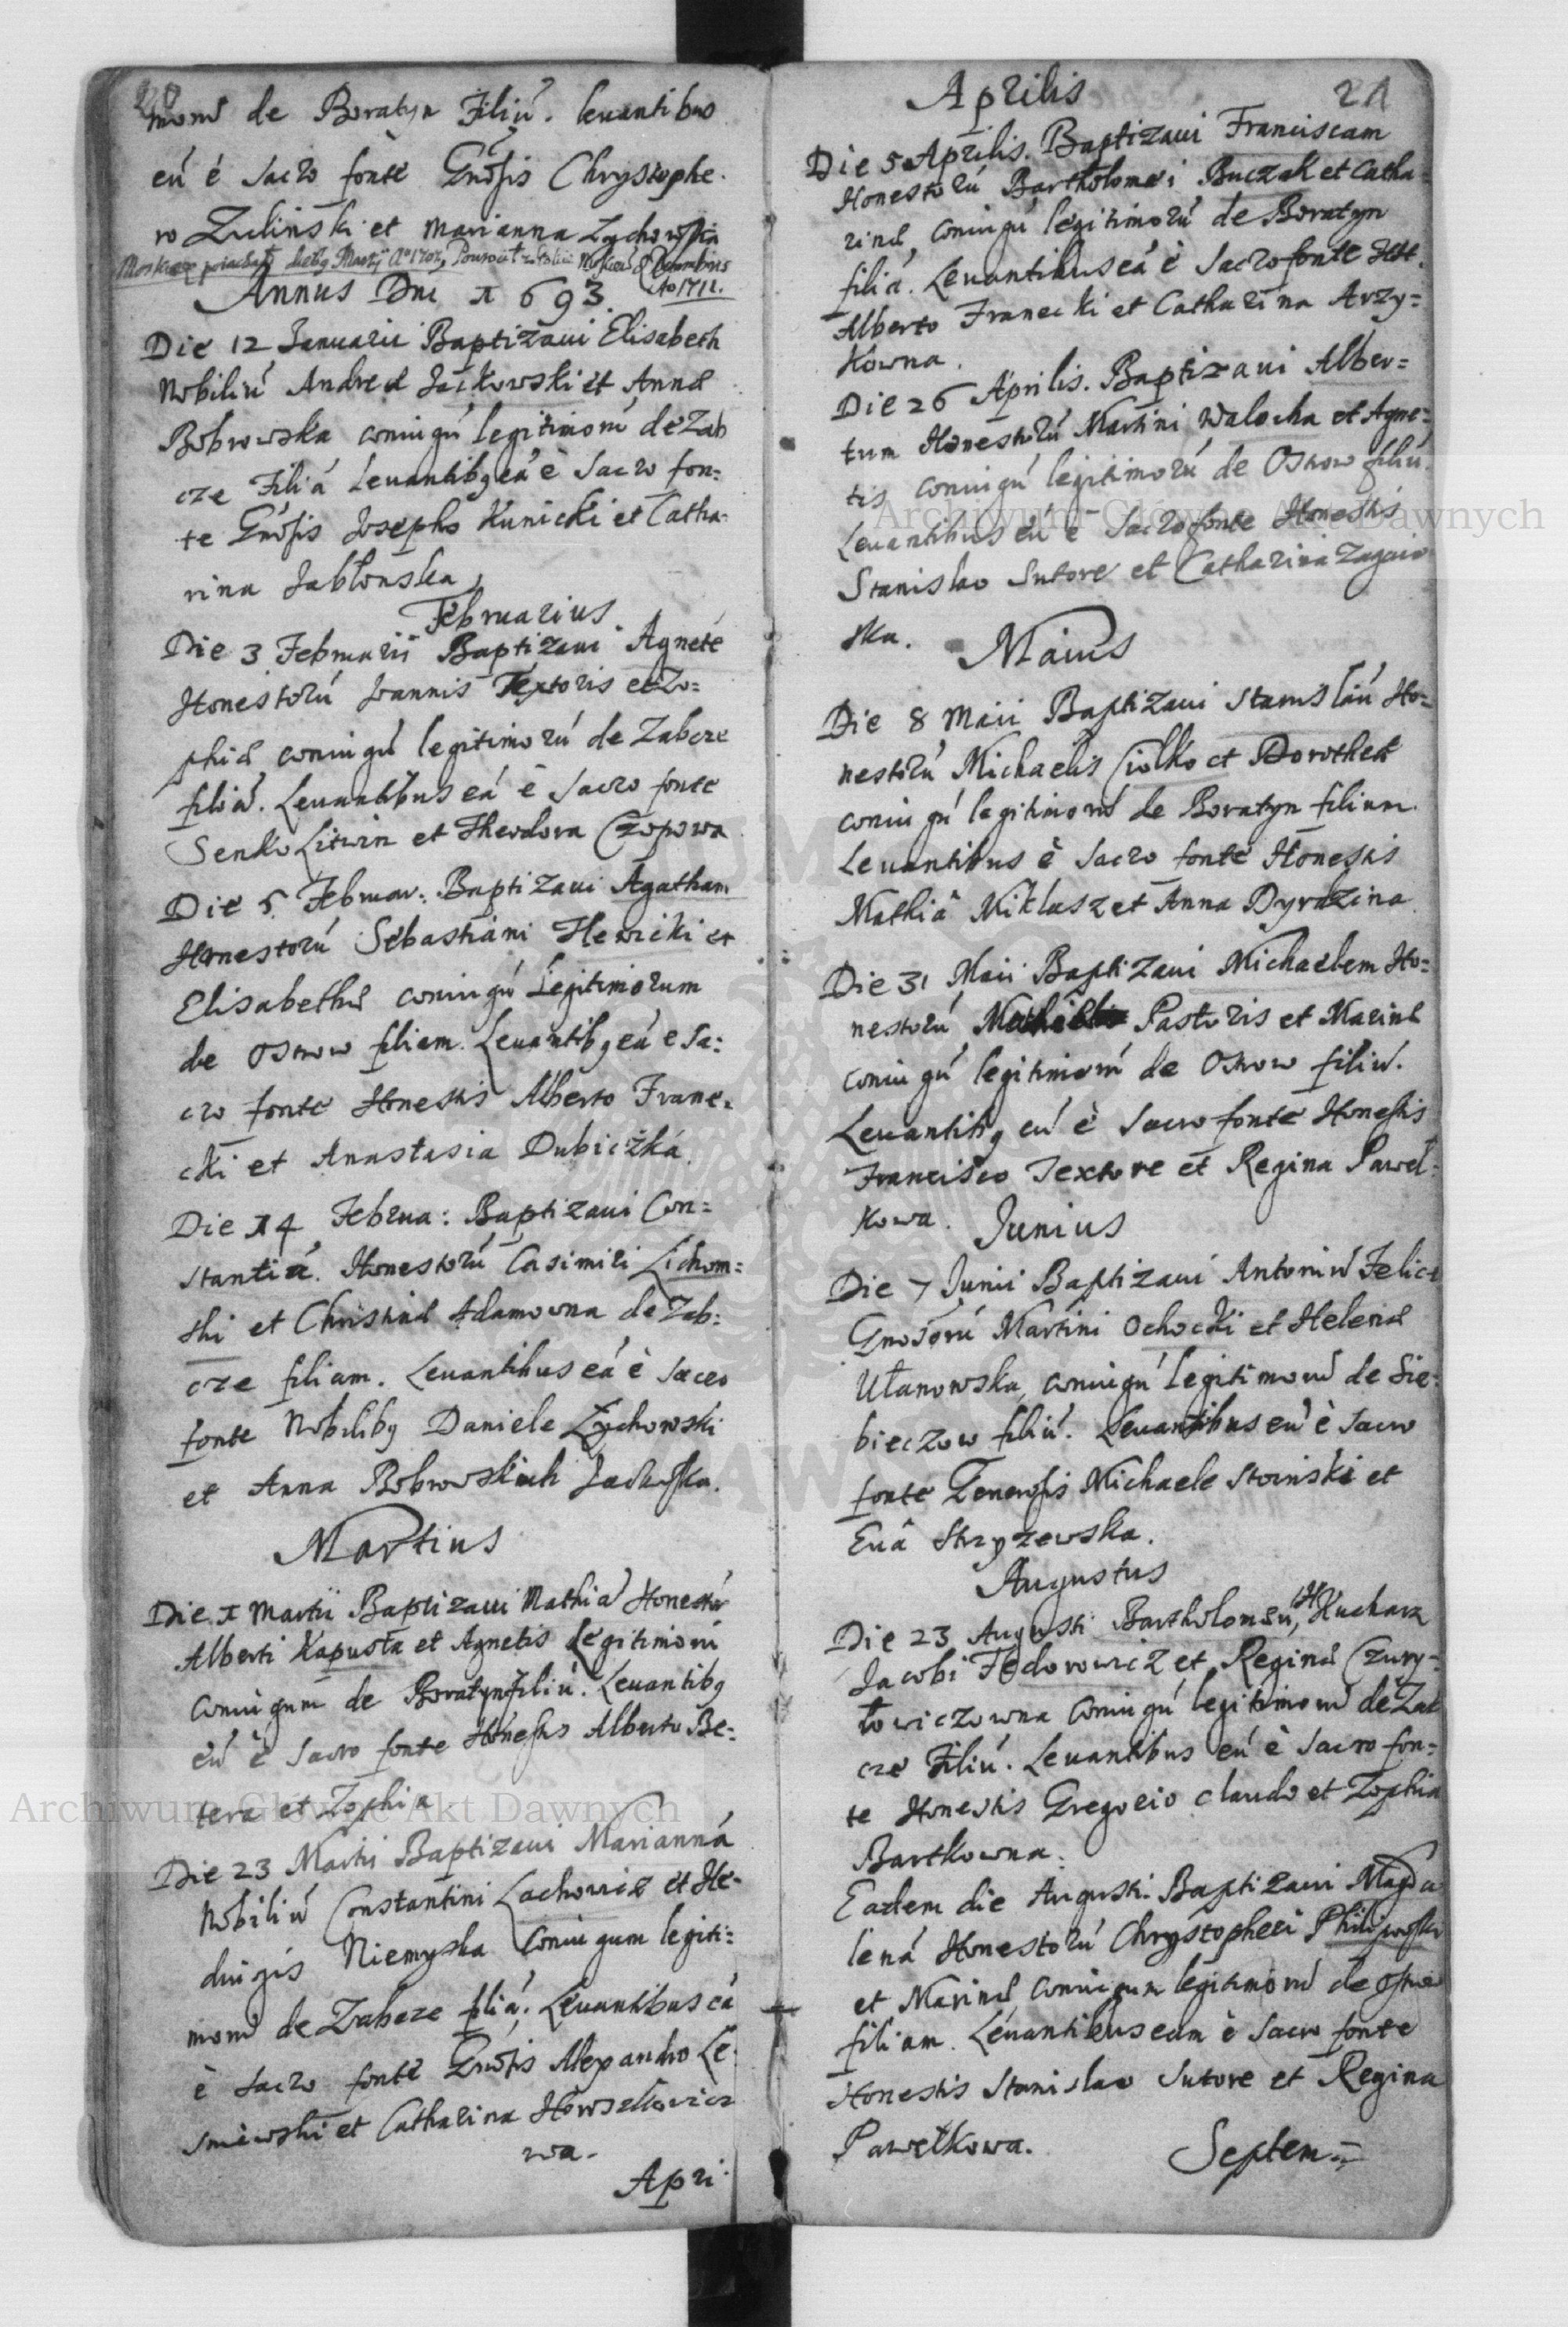 28
morú de Boratyn Filiú. levantibus
eú è Sacro fonte Gnosis Chrystophe.
ro Zulinski et Marianna Zychowska
Annus Dni 1693.
Die 12 Januarii Baptizaui Elisabeth
Nobiliú Andreæ Jackowski et Annæ
Bobrowska coniugú legitimorú de Zab
cze Filiá Leuantibq eá è Sacro fon=
te Gnosis Josepho Kunicki et Catha-
rina Jabłonska
Februarius.
Die 3 Februarii Baptizaui Agneté
Honestorú Joannis Textoris et Zo=
phiæ coniugú legitimorú de Zabcze
filiá. Leuantibus eá è Sacro fonte
Senko Litwin et Theodora Czopowa
Die 5 Februar: Baptizaui Agatham
Honestorú Sebastiani Hewicki et
Elisabethæ coniugú Legitimorum
de Ostrow filiam. Leuantibq eá e Sa:
cro fonte Honestis Alberto Frane.
cki et Anastasia Dubiczká.
Die 14 Februa: Baptizaui Con=
stantiá. Honestorú Casimiri Lichom=
ski et Christinæ Adamowna de Zab:
cze filiam. Leuantibus eá è Sacro
fonte Nobilibq Daniele Zychowski
et Anna Bobrowskich
Martius
Die 1 Martii Baptizaui Mathiá Honestorú
Alberti Kapusta et Agnetis Legitimorú
Coniugum de Boratyn filiú. Leuantibq
eú è Sacro fonte Honestis Alberto Be=
tera et Zophia
Die 23 Martii Baptizaui Marianná
Nobiliú Constantini Lachowicz et He-
duigis Niemyska Coniugum legiti=
morú de Zabcze filiá; Leuantibus eá
è Sacro fonte Gnosis Alexandro Le.
sniewski et Catharina Howszkowicz
wa.
Apri:
Aprilis
21
Die 5 Aprilis. Baptizaui Franciscam
Honestorú Bartholomei Buczak et Catha=
rinæ, coniugú legitimorú de Boratyn
filiá. Leuantibus eá è Sacro fonte Hte.
Alberto Franecki et Catharina Arzy=
kowna.
Die 26 Aprilis. Baptizaui Alber=
tum Honestorú Martini Walocha et Agne=
tis coniugú legitimorú de Ostrow filiú.
Leuantibus eú è Sacro fonte Honestis
Stanislao Sutore et Catharina Zagaio
ska.
Maius
Die 8 Maii Baptizaui Stanislaú Ho=
nestorú Michaelis Ciołko et Dorotheæ
coniugú legitimorú de Boratyn filium.
Leuantibus è Sacro fonte Honestis
Mathiâ Miklasz et Anna Dyrdzina
Die 31 Maii Baptizaui Michaelem Ho=
nestorú Pastoris et Marinæ
coniugú legitimorú de Ostrow filiú.
Leuantibq eú è Sacro fonte Honestis
Francisco Textore et Regina Paweł=
kowa.
Junius
Die 7 Junii Baptizaui Antoniú Felice
Gnosorú Martini Ochocki et Helenæ
Ułanowska, coniugú legitimorú de Sie=
bieczow filiú. Leuantibus eú è Sacro
fonte Generosis Michaele Stoinski et
Euâ Strzyzewska.
Augustus
Die 23 Augusti Bartholomeú, H Kucharz
Jacobi Fedorowicz et Reginæ Czury=
łowiczowna Coniugú legitimorú de Zab
cze Filiú. Leuantibus eú è Sacro fon=
te Honestis Gregorio claudo et Zophia
Bartkowna.
Eadem die Augusti Baptizaui Magda
lená Honestorú Chrystopheri Philipowski
et Marinæ Coniugum legitimorú de Ostrow
filiam. Leuantibus eam è Sacro fonte
Honestis Stanislao Sutore et Regina
Pawełkowa.
Septem=
Archiwum Główne Akt Dawnych
Archiwum Główne Akt Dawnych